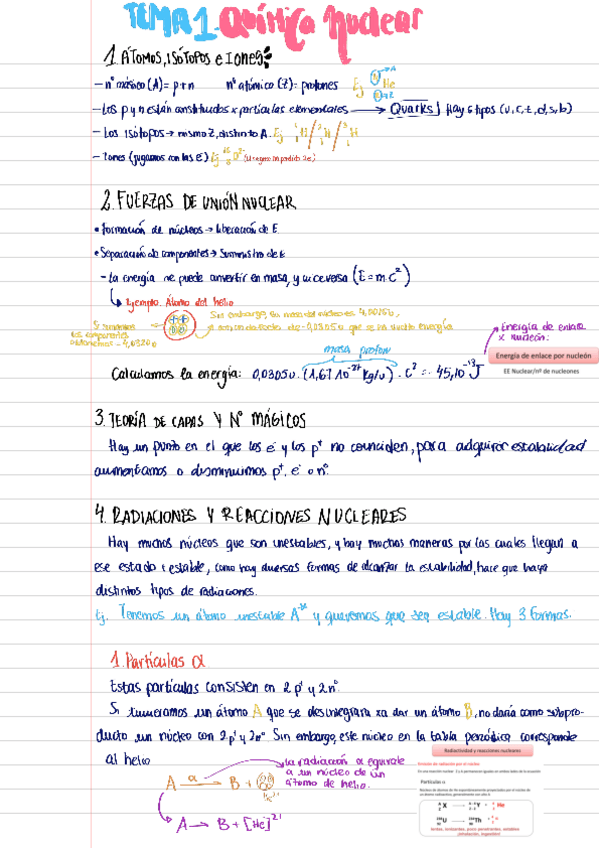 TEMA 1. Química Nuclear
1. ÁTOMOS, ISÓTOPOS e Iones:
- nº másico (A) = p+n nº atómico (Z) = protones Ej He
→A
→Z
- Los p y n están constituidos x partículas elementales → Quarks Hay 6 tipos (u, c, t, d, s, b)
- Los isótopos → mismo Z, distinto A. Ej H / H / H
- Iones (jugamos con las e⁻) Ej
2. FUERZAS DE UNIÓN NUCLEAR
• Formación de núcleos → liberación de E
• Separación de componentes → Suministro de E
- La energía se puede convertir en masa, y viceversa (E = m·c²)
↳ Ejemplo. Átomo del helio
Sin embargo, la masa del núcleo es 4,0026u,
Si sumamos
los componentes
obtenemos = 4,0320u
Energía de enlace
x nucleón:
masa protón
Energía de enlace por nucleón
EE Nuclear/nº de nucleones
Calculamos la energía: 0,0305u · (1,67·10⁻²⁷ kg/u) · c² = 45,10⁻¹³ J
3. TEORÍA DE CAPAS Y Nº MÁGICOS
Hay un punto en el que los e⁻ y los p⁺ no coinciden, para adquirir estabilidad
aumentamos o disminuimos p⁺, e⁻ o nº.
4. RADIACIONES Y REACCIONES NUCLEARES
Hay muchos núcleos que son inestables, y hay muchas maneras por las cuales llegan a
ese estado estable, como hay diversas formas de alcanzar la estabilidad, hace que haya
distintos tipos de radiaciones.
Ej. Tenemos un átomo inestable A* y queremos que sea estable. Hay 3 formas.
1. Partículas α
Estas partículas consisten en 2p⁺ y 2nº.
Si tuviéramos un átomo A que se desintegrara xa dar un átomo B, no daría como subpro-
ducto un núcleo con 2p⁺ y 2nº. Sin embargo, este núcleo en la tabla periódica corresponde
al helio
la radiación α equivale
a un núcleo de un
átomo de helio.
A –α→ B +
He²⁺
A → B + [He]²⁺
Radiactividad y reacciones nucleares
Partículas α
X → Y + He
U → Th +